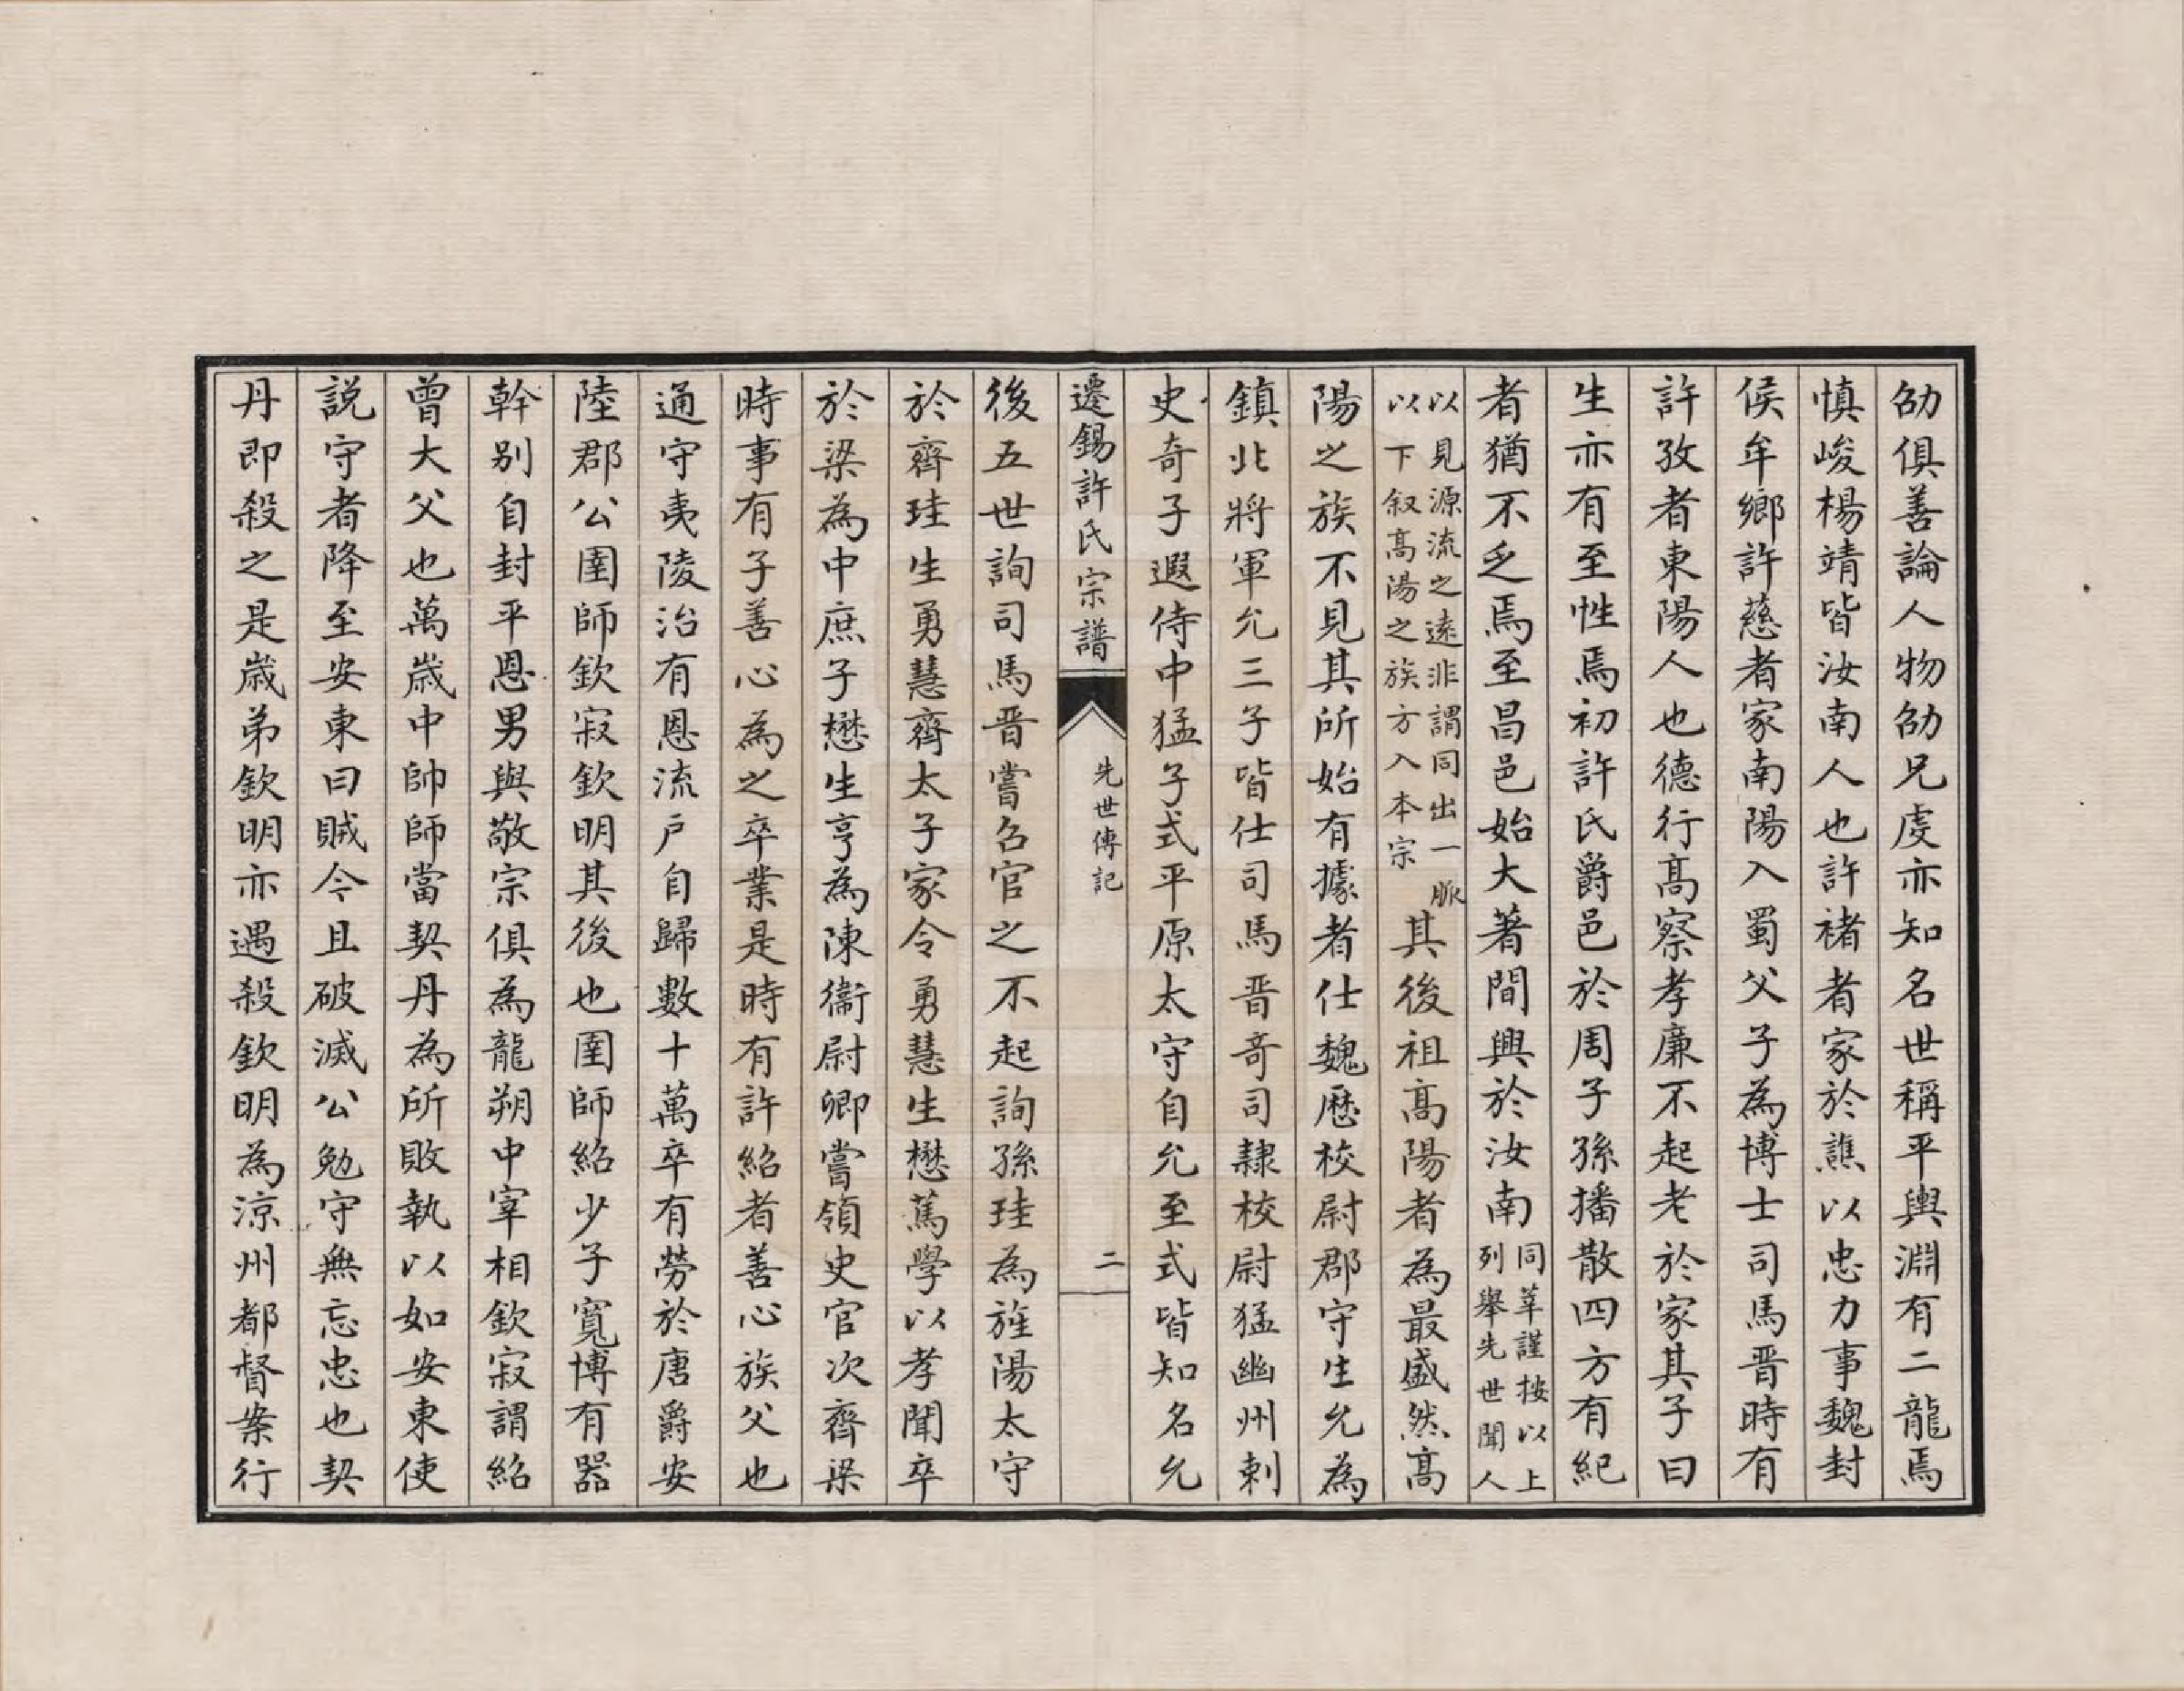 劭俱善論人物劭兄虔亦知名世稱平輿淵有二龍焉
慎峻楊靖皆汝南人也許褚者家於譙以忠力事魏封
侯牟鄉許慈者家南陽入蜀父子為博士司馬晋時有
許孜者東陽人也德行高察孝廉不起老於家其子曰
生亦有至性焉初許氏爵邑於周子孫播散四方有紀
者猶不乏焉至昌邑始大著間興於汝南同莘謹按以上
列舉先世聞人
以見源流之遠非謂同出一脈
以下叙高陽之族方入本宗其後祖高陽者為最盛然高
陽之族不見其所始有據者仕魏歷校尉郡守生允為
鎮北將軍允三子皆仕司馬晋奇司隸校尉猛幽州刺
史奇子遐侍中猛子式平原太守自允至式皆知名允
遷錫許氏宗譜 先世傳記 二
後五世詢司馬晋嘗名官之不起詢孫珪為旌陽太守
於齊珪生勇慧齊太子家令勇慧生懋篤學以孝聞卒
於梁為中庶子懋生亨為陳衞尉卿嘗領史官次齊梁
時事有子善心為之卒業是時有許紹者善心族父也
通守夷陵治有恩流戶自歸數十萬卒有勞於唐爵安
陸郡公圉師欽寂欽明其後也圉師紹少子寬博有器
幹別自封平恩男與敬宗俱為龍朔中宰相欽寂謂紹
曾大父也萬歲中帥師當契丹為所敗執以如安東使
說守者降至安東曰賊今且破滅公勉守無忘忠也契
丹即殺之是歲弟欽明亦遇殺欽明為涼州都督案行